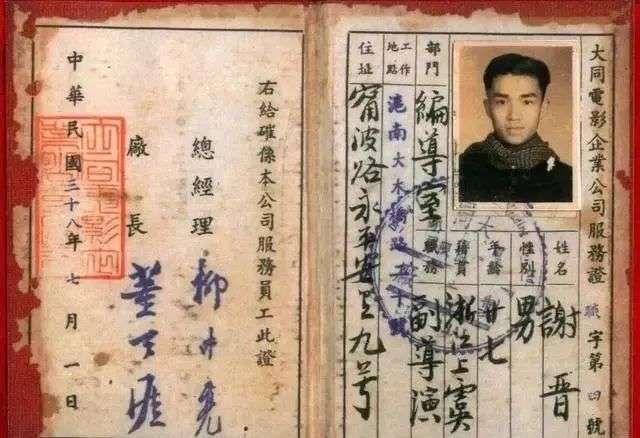 大同電影企業公司服務證 職字第四號
姓名 謝晋
性別 男
年齡 廿七
籍貫 浙江上虞
職務 副導演
部門 編導室
工作地點 滬南大木橋路五十號
住址 甯波路永平安里九号
右給確係本公司服務員工此證
總經理 柳中亮
廠長 董天涯
中華民國三十八年七月一日